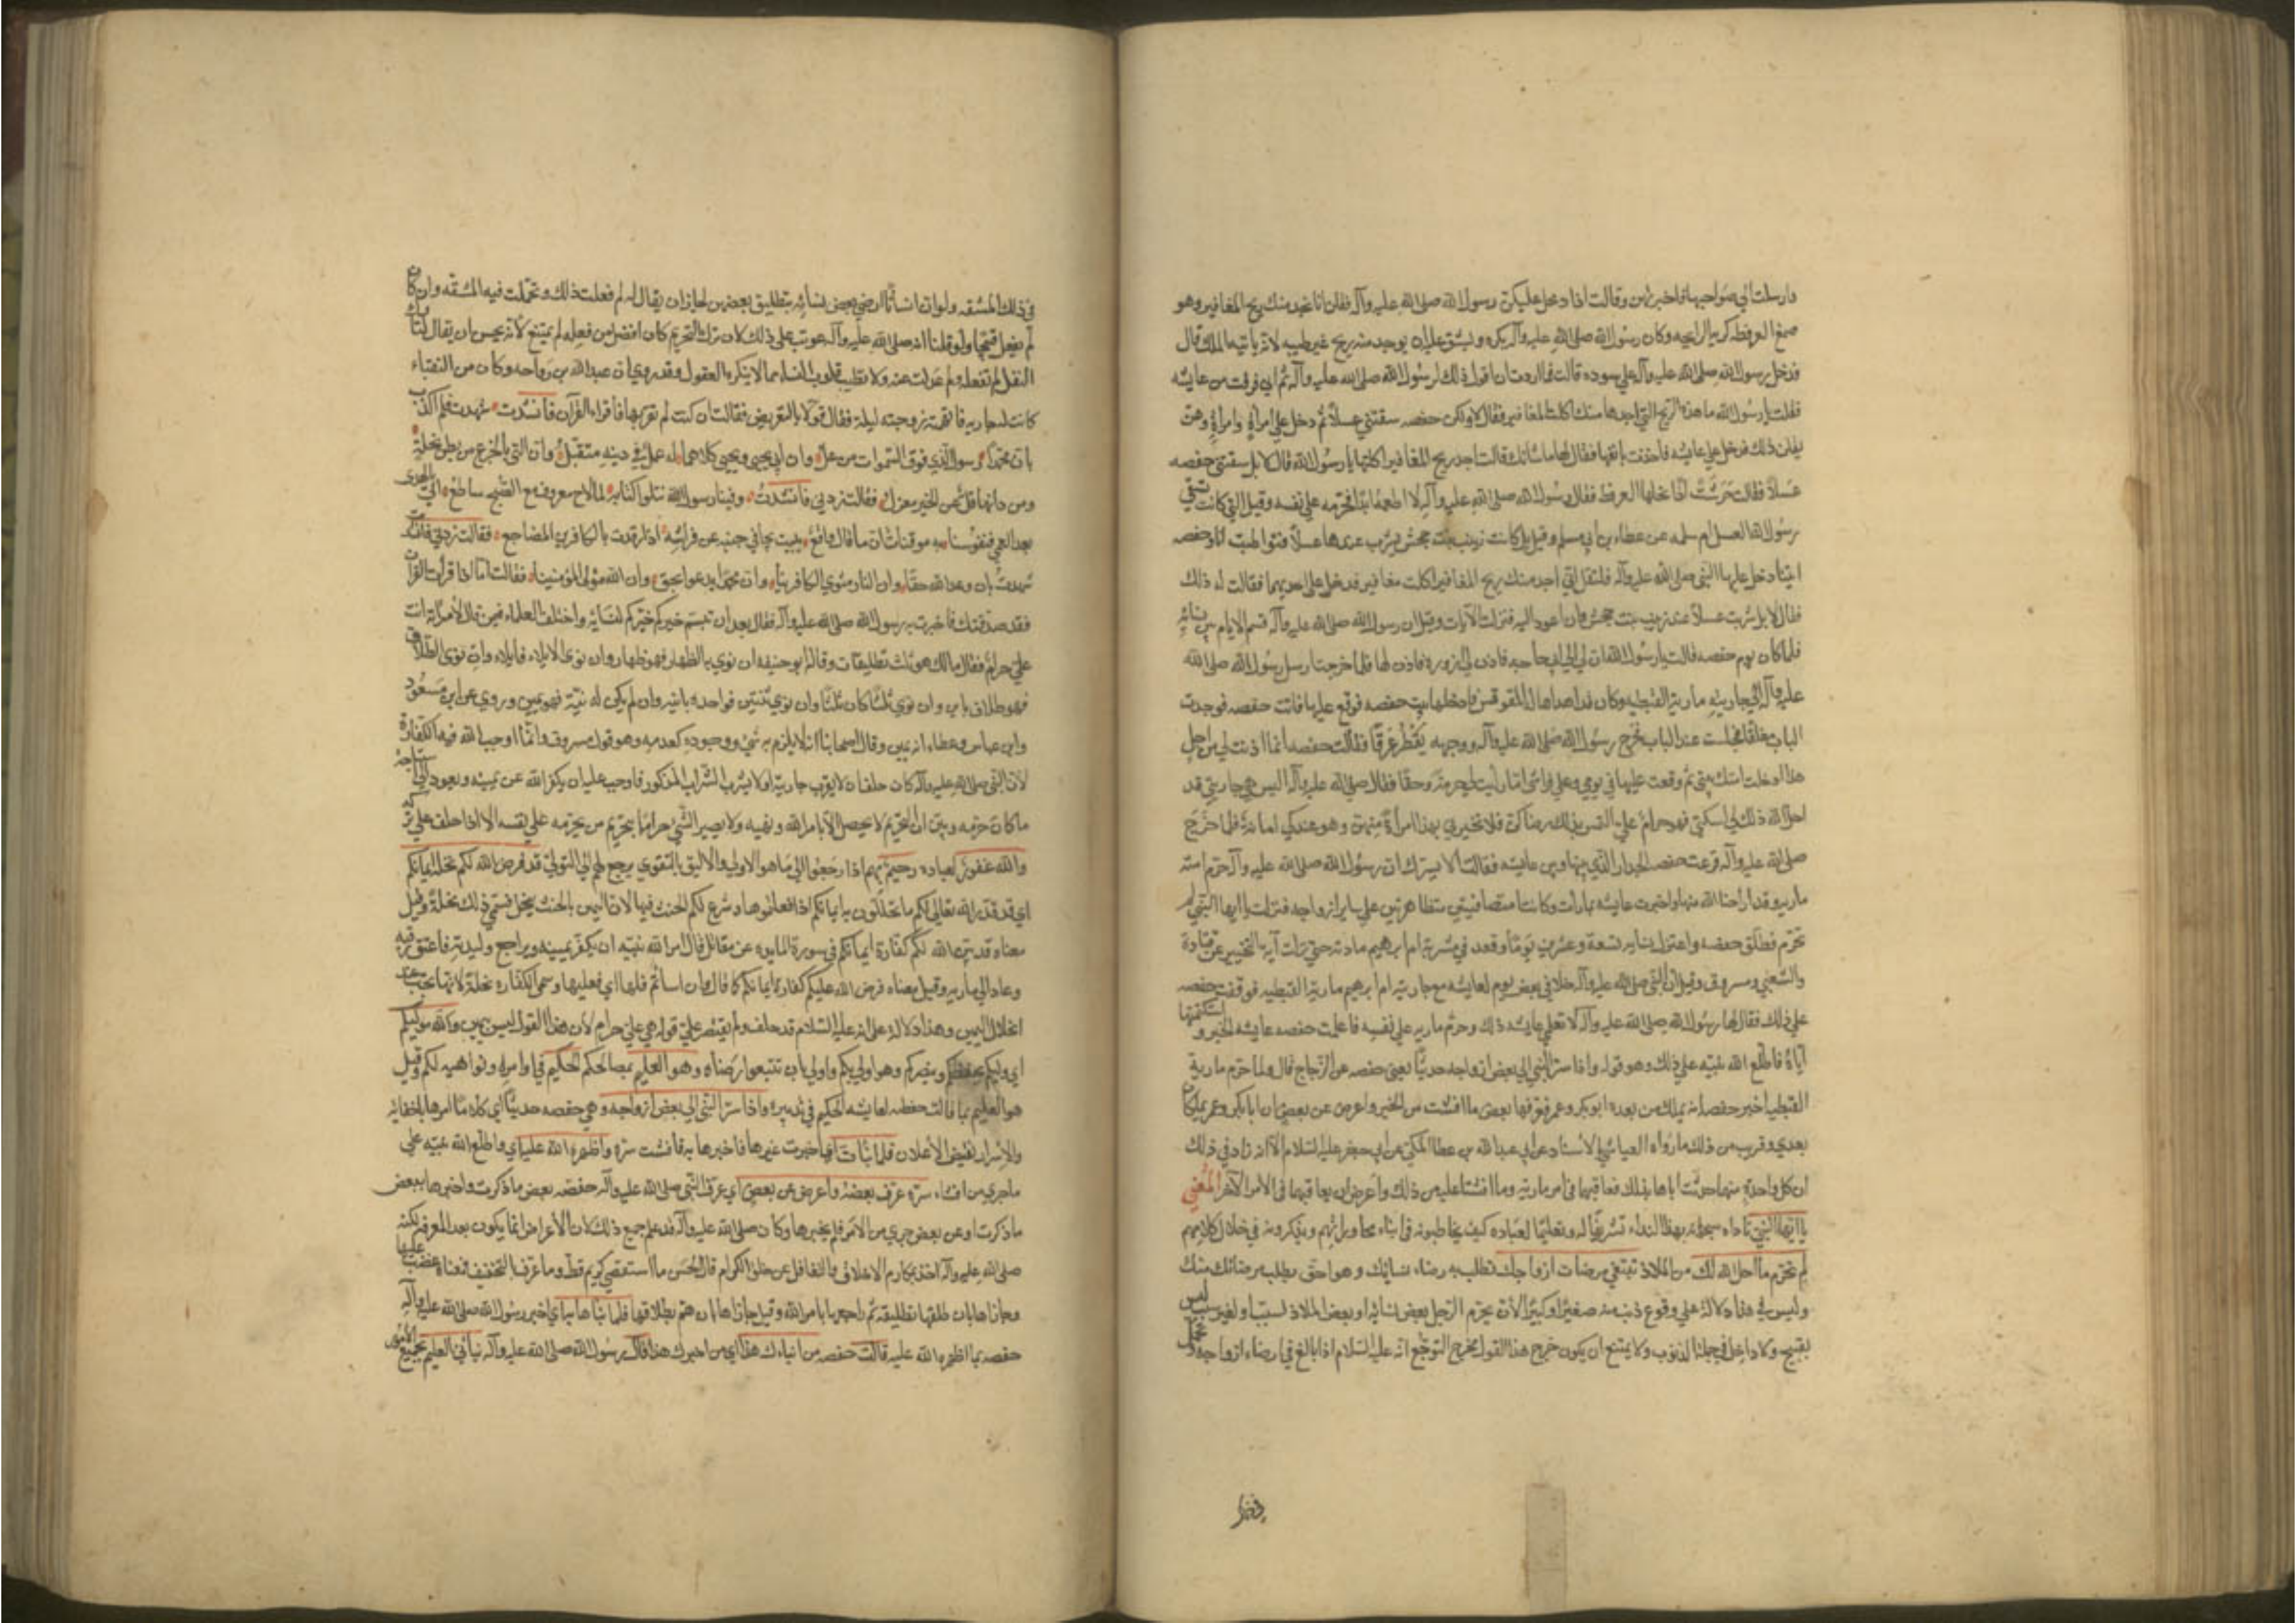 فارسلت الي صواحبها فاخبرتهن وقالت اذا دخل عليكن رسول الله صلي الله عليه وآله فقلن انا نجد منك ريح المغافير وهو
صمغ العرفط كريه الرايحه وكان رسول الله صلي الله عليه وآله يكره ويشق عليه ان يوجد منه ريح غير طيبه لانه ياتيه الملك قال
فدخل رسول الله صلي الله عليه وآله علي سوده قالت فما اردت ان اقول ذلك لرسول الله صلي الله عليه وآله ثم اني فرقت من عايشه
فقلت يا رسول الله ما هذه الريح التي اجدها منك اكلت المغافير فقال لا ولكن حفصه سقتني عسلاً ثم دخل علي امرأةٍ وامرأةٍ وهن
يقلن ذلك فدخل علي عايشه فاخذت بانفها فقال لها ما شانك قالت اجد ريح المغافير اكلتها يا رسول الله قال لا بل سقتني حفصه
عسلاً فقالت جَرَسَتْ اذا نحلها العرفط فقال رسول الله صلي الله عليه وآله لا اطعمه ابداً فحرمه علي نفسه وقيل التي كانت تسقي
رسول الله العسل ام سلمه عن عطاء بن ابي مسلم وقيل بل كانت زينب بنت جحش يشرب عندها عسلاً فتواطيت انا وحفصه
ايتنا دخل عليها النبي صلي الله عليه وآله فلتقل اني اجد منك ريح المغافير اكلت مغافير فدخل علي احديهما فقالت له ذلك
فقال لا بل شربت عسلاً عند زينب بنت جحش ولن اعود اليه فنزلت الآيات وقيل ان رسول الله صلي الله عليه وآله قسم الايام بين نسائه
فلما كان يوم حفصه قالت يا رسول الله ان لي الي ابي حاجه فاذن لي ازوره فاذن لها فلما خرجت ارسل رسول الله صلي الله
عليه وآله الي جاريته مارية القبطيه وكان قد اهداها له المقوقس فادخلها بيت حفصه فوقع عليها فاتت حفصه فوجدت
الباب مغلقا فجلست عند الباب فخرج رسول الله صلي الله عليه وآله ووجهه يَقْطُر عَرَقًا فقالت حفصه انما اذنت لي من اجل
هذا ادخلت امتك بيتي ثم وقعت عليها في يومي وعلي فراشي اما رايت لي حرمةً وحقا فقال صلي الله عليه وآله اليس هي جاريتي قد
احل الله ذلك لي اسكتي فهو حرامٌ علي التمس بذلك رضاكِ فلا تخبري بهذا امرأةً منهن وهو عندكِ امانة فلما خَرَجَ
صلي الله عليه وآله قرعت حفصه الجدار الذي بينها وبين عايشه فقالت الا ابشرك ان رسول الله صلي الله عليه وآله حرم امته
ماريه وقد اراحنا الله منها واخبرت عايشه بما رات وكانتا متصافيتين متظاهرتين علي ساير ازواجه فنزلت يا ايها النبي لم
تحرم فطلق حفصه واعتزل نسايه تسعة وعشرين يومًا وقعد في مشربة ام ابرهيم ماريه حتي نزلت آية التخيير عن قتادة
والشعبي ومسروق وقيل ان النبي صلي الله عليه وآله خلا في بعض يوم لعايشه مع جاريته ام ابرهيم مارية القبطيه فوقفت حفصه
علي ذلك فقال لها رسول الله صلي الله عليه وآله لا تعلمي عايشه ذلك وحرم ماريه علي نفسه فاعلمت حفصه عايشه الخبر واستكتمتها
اياه فاطلع الله نبيه علي ذلك وهو قوله واذ اسر النبي الي بعض ازواجه حديثًا يعني حفصه عن الزجاج قال ولما حرم مارية
القبطيه اخبر حفصه انه يملك من بعده ابو بكر وعمر فعرفها بعض ما افشت من الخبر واعرض عن بعض ان ابا بكر وعمر يملكان
بعدي وقريب من ذلك ما رواه العياشي بالاسناد عن ابي عبد الله بن عطا المكي عن ابي جعفر عليه السلام الا انه زاد في ذلك
ان كل واحدةٍ منهما حدثت اباها بذلك فعاتبهما في امر ماريه وما افشتا عليه من ذلك واعرض ان يعاتبهما في الامر الآخر المعني
يا ايها النبي ناداه سبحانه بهذا النداء تشريفًا له وتعليمًا لعباده كيف يخاطبونه في اثناء محاوراتهم ويذكرونه في خلال كلامهم
لم تحرم ما احل الله لك من الملاذ تبتغي مرضات ازواجك تطلب به رضاء نسائك وهو احق بطلب مرضاتك منك
وليس في هذا دلالة علي وقوع ذنب منه صغيرًا او كبيرًا لان تحريم الرجل بعض نسائه او بعض الملاذ لسبب او لغير سبب ليس
بقبيح ولا داخل في جملة الذنوب ولا يمتنع ان يكون خرج هذا القول مخرج التوجع له عليه السلام اذا بالغ في ارضاء ازواجه وتحمل
في ذلك المشقه ولو ان انسانًا ارضي بعض نسائه بتطليق بعضهن لجاز ان يقال له لم فعلت ذلك وتحملت فيه المشقه وان كان
لم يفعل قبيحا ولو قلنا انه صلي الله عليه وآله عوتب علي ذلك لان ترك التحريم كان افضل من فعله لم يمتنع لانه يحسن ان يقال لتارك
النفل لم لم تفعله ولم عدلت عنه ولان تطييب قلوب النساء مما لا ينكره العقول وقد روي ان عبد الله بن رَواحه وكان من النقباء
كانت له جاريه فاتهمته زوجته ليلة فقال قولا بالتعريض فقالت ان كنت لم تقربها فاقراء القرآن فانشدت شهدت فلم اكذب
بان محمداً رسول الذي فوق السموات من عل وان ابي يحيي ويحيي كلاهما له عمل في دينه متقبل وان التي بالجزع من بطن نخلةٍ
ومن دانها فل عن الخير معزل فقالت زدني فانشدتُ وفينا رسول الله نتلوا كتابه كما لاح معروف مع الصبح ساطع اتي بالهدي
بعد العمي فنفوسنا به موقنات ان ما قال واقع يبيت يجافي جنبه عن فراشه اذا رقدت بالكافرين المضاجع فقالت زدني فانشدت
شهدتُ بان وعد الله حقا وان النار مثوي الكافرينا وان محمدًا يدعو بحق وان الله مولي المؤمنينا فقالت اما اذا قرأت القرآن
فقد صدقتك فاخبرت به رسول الله صلي الله عليه وآله فقال بعد ان تبسم خيركم خيركم لنسائه واختلف العلماء فيمن قال لامراته انت
علي حرام فقال مالك هو ثلث تطليقات وقال ابو حنيفه ان نوي به الظهار فهو ظهار وان نوي الايلاء فايلاء وان نوي الطلاق
فهو طلاق باين وان نوي ثلثًا كان ثلثًا وان نوي ثنتين فواحده باينه وان لم يكن له نيّة فهو يمين وروي عن ابن مسعود
وابن عباس وعطاء انه يمين وقال اصحابنا انه لا يلزم به شئ ووجوده كعدمه وهو قول مسروق وانما اوجب الله فيه الكفارة
لان النبي صلي الله عليه وآله كان حلف ان لا يقرب جاريته او لا يشرب الشراب المذكور فاوجب عليه ان يكفر الله عن يمينه ويعود الي استباحة
ما كان حرمه وبيّن ان التحريم لا يحصل الا بامر الله ونهيه ولا يصير الشئ حرامًا بتحريم من يحرمه علي نفسه الا اذا حلف علي تركه
والله غفور لعباده رحيم بهم اذا رجعوا الي ما هو الاولي والاليق بالتقوي يرجع لهم الي التولي قد فرض الله لكم تحلة ايمانكم
اي قد قدر الله تعالي لكم ما تحللون به ايمانكم اذا فعلتموها وشرع لكم الحنث فيها لان اليمين بالحنث ينحل فسمي ذلك تحلة وقيل
معناه قد بين الله لكم كفارة ايمانكم في سورة المايده عن مقاتل قال امر الله نبيه ان يكفر يمينه ويراجع وليدته فاعتق رقبه
وعاد الي ماريه وقيل معناه فرض الله عليكم كفارة ايمانكم كما قال وان اساتم فلها اي فعليها وسمي الكفاره تحلة لانها تجب عند
انحلال اليمين وهذا دلالة علي انه عليه السلام قد حلف ولم يقتصر علي قوله هي علي حرام لان هذا القول ليس بيمين والله موليكم
اي وليكم يحفظكم وينصركم وهو اولي بكم واولي بان تتبعوا رضاه وهو العليم بمصالحكم الحكيم في اوامره ونواهيه لكم وقيل
هو العليم بما قالت حفصه لعايشه الحكيم في تدبيره واذ اسر النبي الي بعض ازواجه وهي حفصه حديثًا اي كلامًا امرها باخفائه
والاسرار نقيض الاعلان فلما نبات به اي اخبرت غيرها فاخبرها به فافشت سره واظهره الله عليه اي واطلع الله نبيه علي
ماجري من افشاء سره عرف بعضه واعرض عن بعض اي عرف النبي صلي الله عليه وآله حفصه بعض ما ذكرت واخبرها ببعض
ما ذكرت او عن بعض جري من الامر فلم يخبرها وكان صلي الله عليه وآله قد علم جميع ذلك لان الاعراض انما يكون بعد المعرفه لكنه
صلي الله عليه وآله اخذ بمكارم الاخلاق والتغافل من خلق الكرام قال الحسن ما استقصي كريم قط وما عرف بالتخفيف فمعناه غضب عليها
وجازاها بان طلقها تطليقه ثم راجعها بامر الله وقيل جازاها بان هم بطلاقها فلما نباها به اي اخبر رسول الله صلي الله عليه وآله
حفصه بما اظهره الله عليه قالت حفصه من انباءك هذا اي من اخبرك هذا قال رسول الله صلي الله عليه وآله نباني العليم بجميع الامور